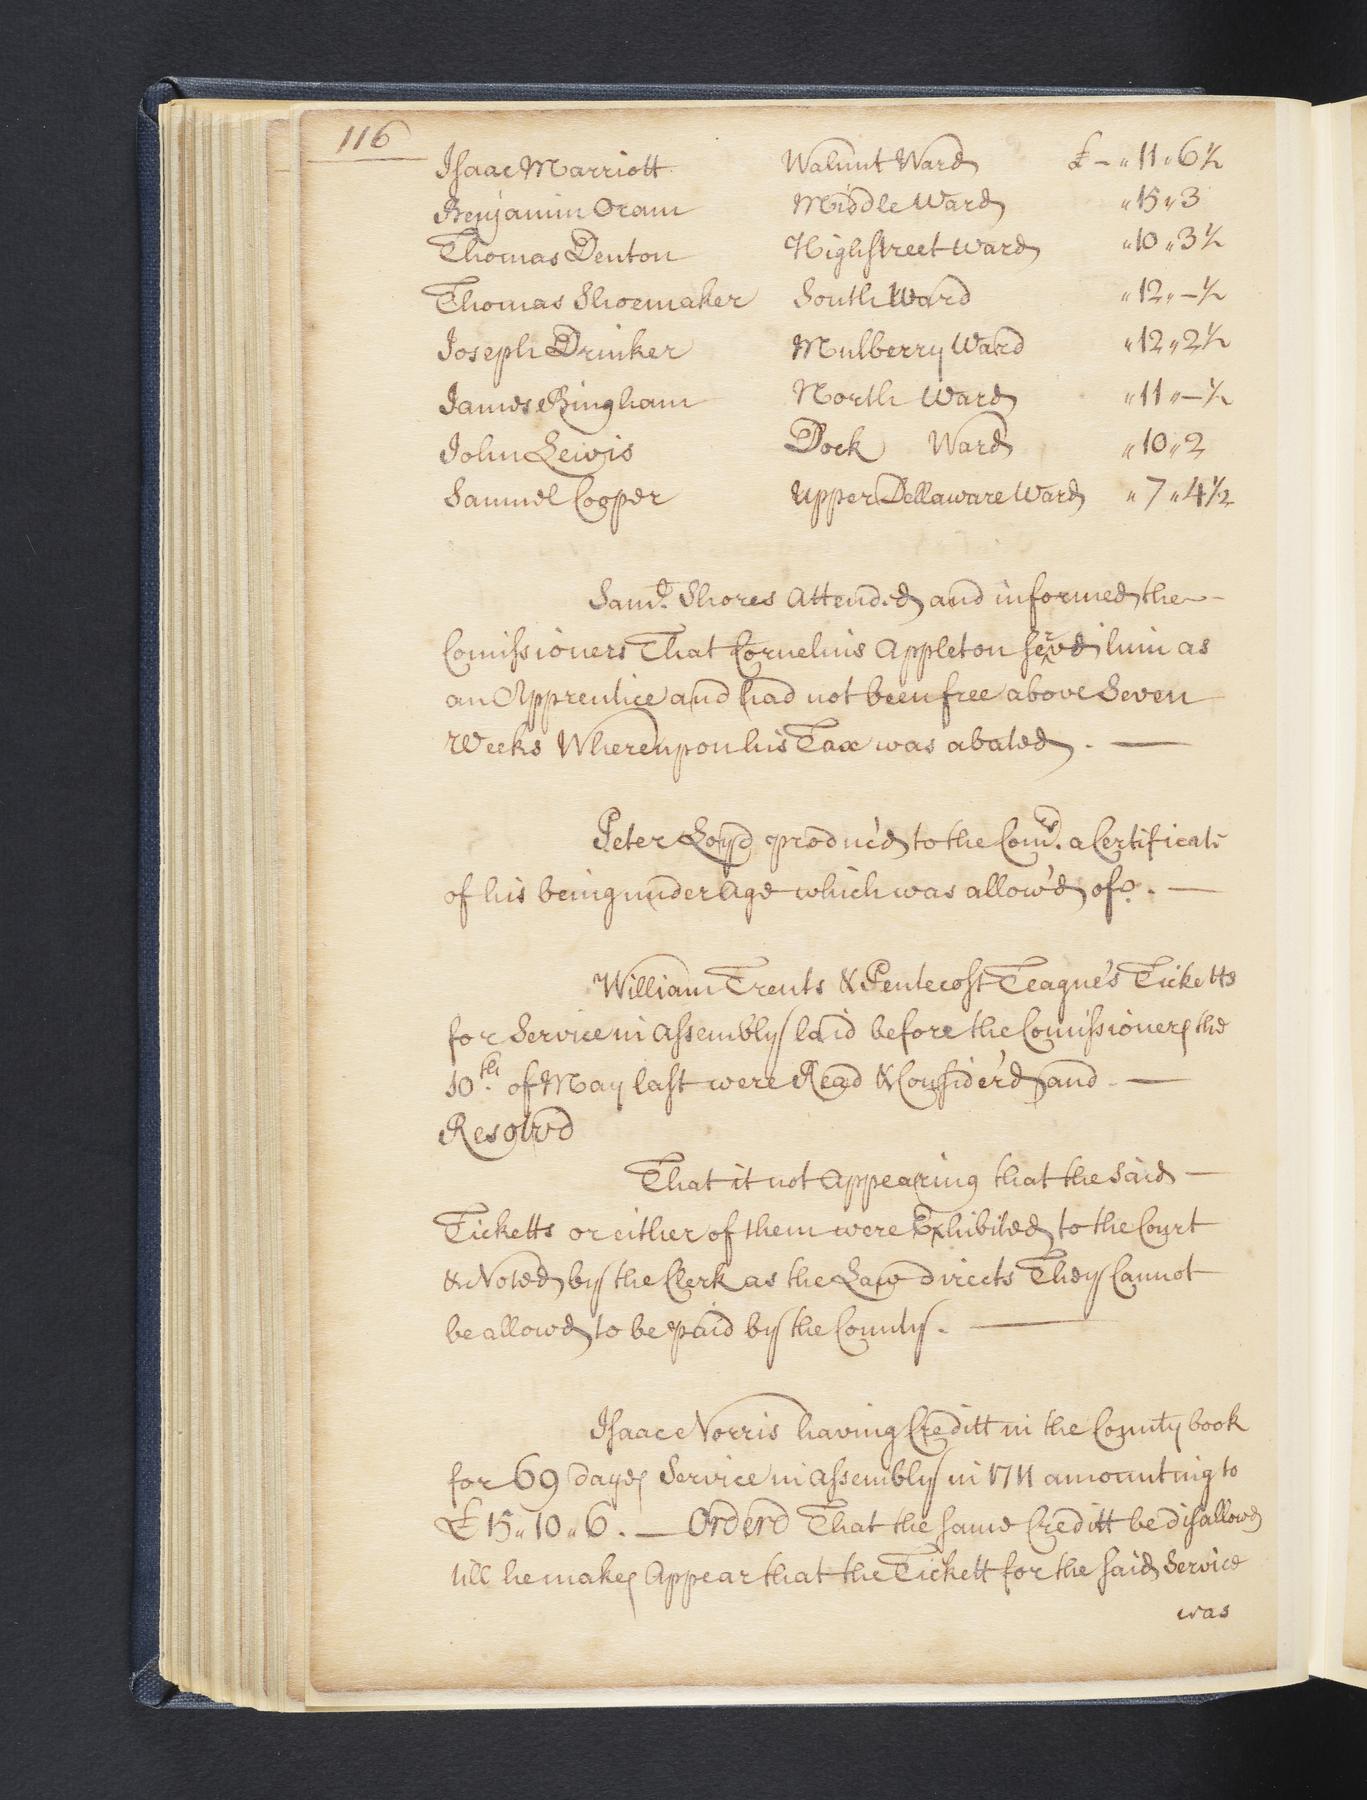 116
Isaac Marriott Walnut Ward £ – „ 11 „ 6½
Benjamin Oram Middle Ward „ 15 „ 3
Thomas Denton Highstreet Ward „ 10 „ 3½
Thomas Shoemaker South Ward „ 12 „ – ½
Joseph Drinker Mulberry Ward „ 12 „ 2½
James Bingham North Ward „ 11 „ – ½
John Lewis Dock Ward „ 10 „ 2
Samuel Cooper Upper Dellaware Ward „ 7 „ 4½
Samˡ. Shores Attended and informed the –
Comissioners That Cornelius Appleton servd him as
an Apprentice and had not been free above Seven
Weeks Whereupon his Tax was abated . —
Peter Loyd produc'd to the Comʳˢ. a Certificate
of his being under Age which was allow'd of . —
William Trents & Pentecost Teague's Ticketts
for Service in Assembly laid before the Comissioners the
10th. of May last were Read & Consider'd and . —
Resolvd
That it not Appearing that the Said —
Ticketts or either of them were Exhibited to the Court
& Noted by the Clerk as the Law directs They Cannot
be allowd to be paid by the County . —
Isaac Norris having Creditt in the County book
for 69 dayes Service in Assembly in 1711 amounting to
£ 15 „ 10 „ 6 . — Orderd That the same Creditt be disallowd
till he makes Appear that the Tickett for the said Service
was